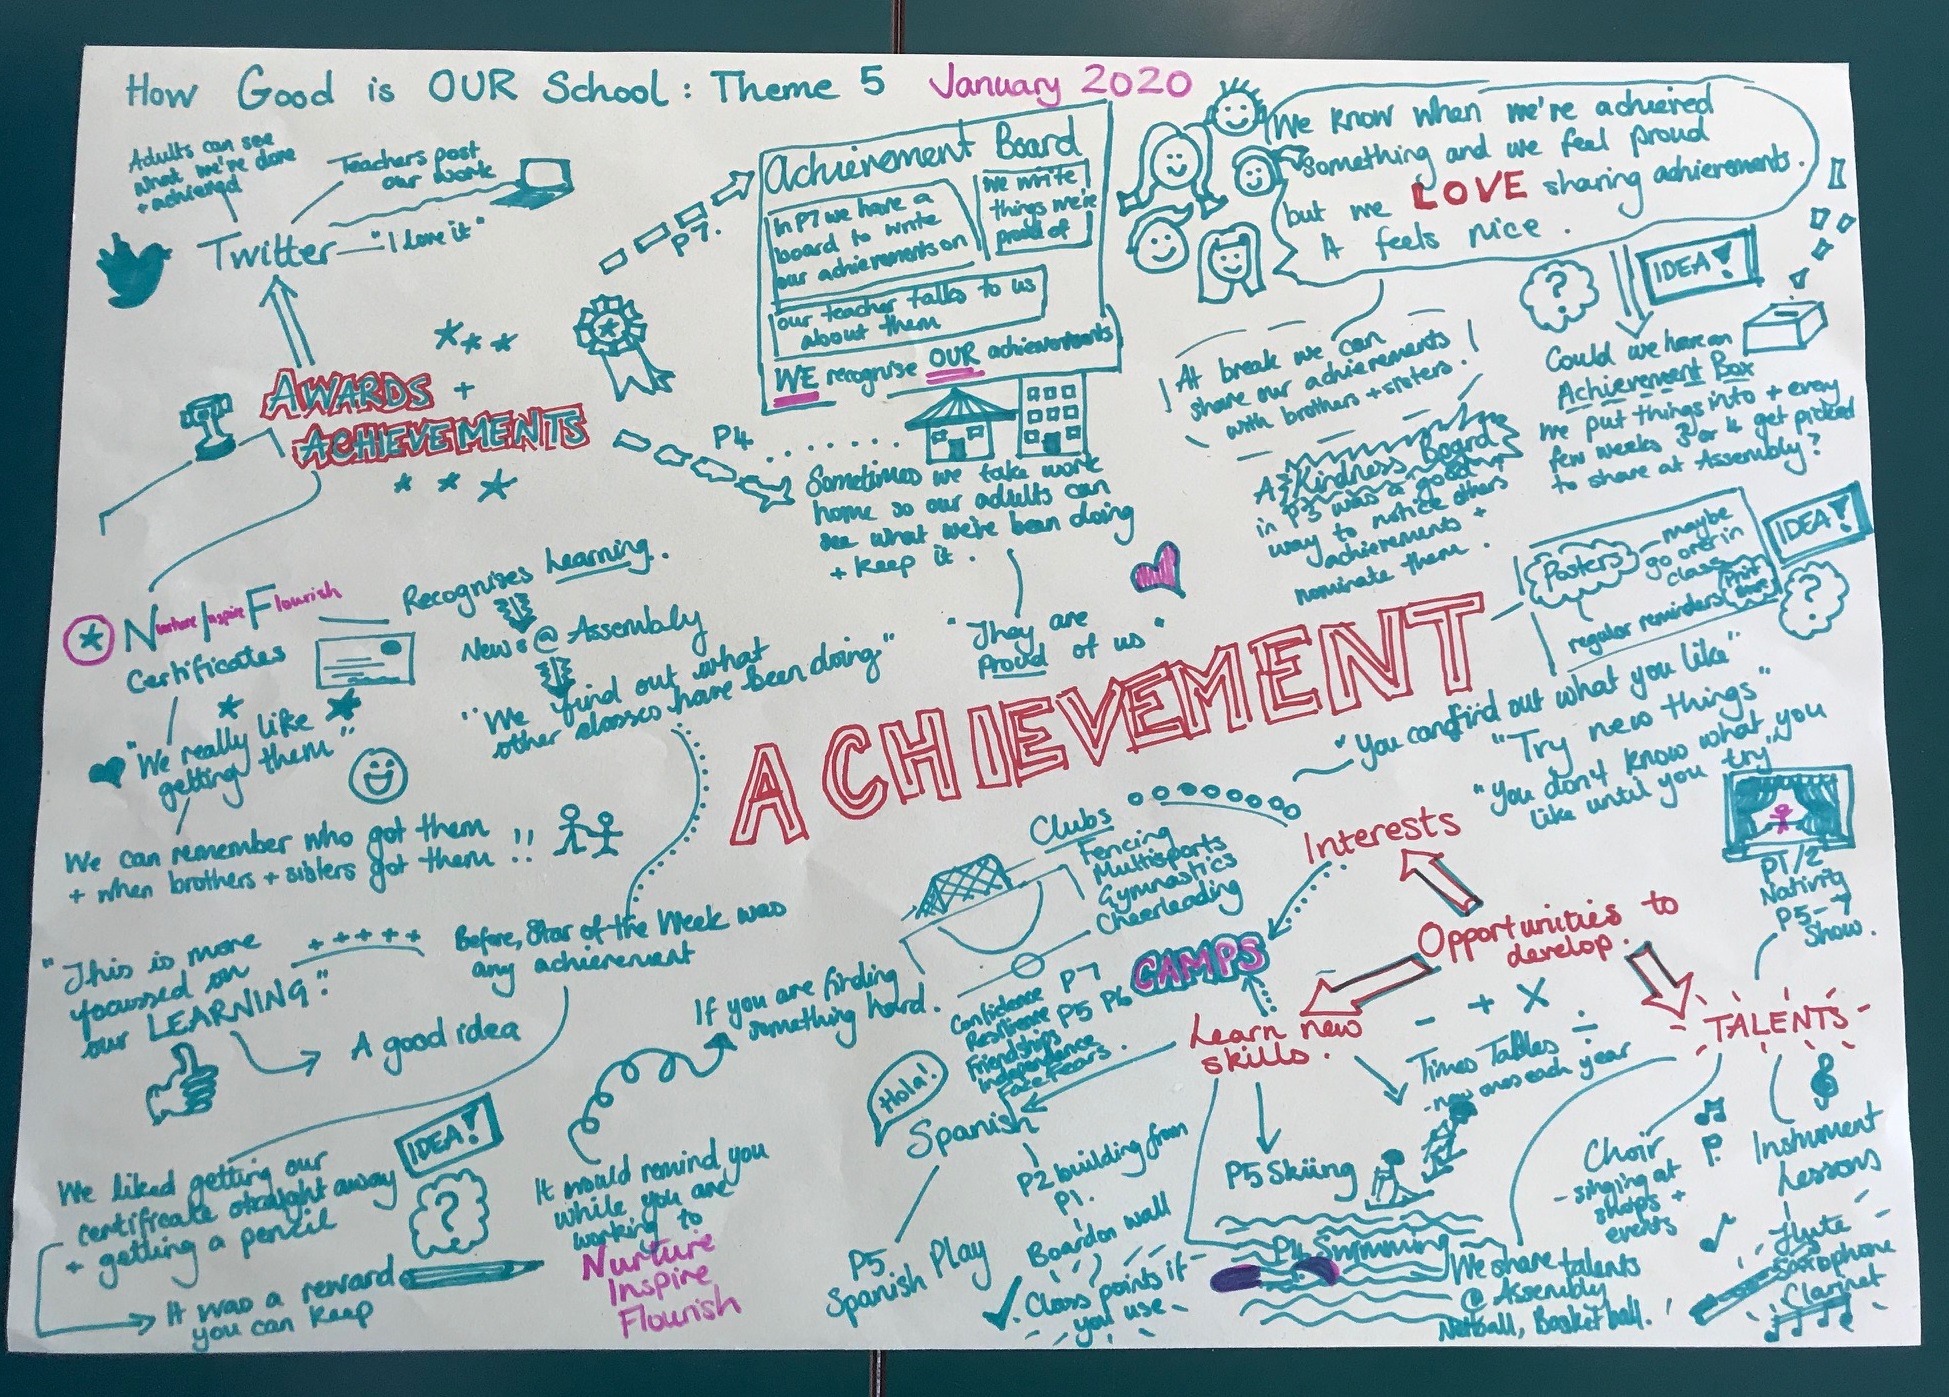 How Good is OUR School : Theme 5 January 2020
Adults can see
what we're done
+ achieved
Teachers post
our work
Twitter
"I love it"
AWARDS +
ACHIEVEMENTS
P7.
Achievement Board
In P7 we have a
board to write
our achievements on
we write
things we're
proud of
our teacher talks to us
about them
WE recognise OUR achievements
We know when we're achieved
something and we feel proud
but we LOVE sharing achievements.
It feels nice.
At break we can
share our achievements
with brothers + sisters.
IDEA!
?
Could we have an
Achievement Box
we put things into + every
few weeks 3 or 4 get picked
to share at Assembly?
P4
Sometimes we take work
home so our adults can
see what we're been doing
+ keep it.
"They are
Proud of us"
A Kindness Board
in P3 was a good
way to notice others
achievements +
nominate them.
IDEA!
?
Posters
maybe
go over in
class
regular reminders
Nurture Inspire Flourish
Certificates
"We really like
getting them"
We can remember who got them
+ when brothers + sisters got them !!
Recognises Learning.
New @ Assembly
"We find out what
other classes have been doing"
ACHIEVEMENT
Before, Star of the Week was
any achievement
"This is more
focussed on
our LEARNING".
A good idea
We liked getting our
certificate straight away
+ getting a pencil
IDEA!
?
It was a reward
you can keep
If you are finding
something hard.
It would remind you
while you are
working to
Nurture
Inspire
Flourish
"You can find out what you like"
"Try new things"
"You don't know what you
like until you try"
Clubs
Fencing
Multisports
Gymnastics
Cheerleading
Interests
Opportunities to
develop.
CAMPS
P7
P5 P6
Confidence
Resilience
Friendships
Independance
Face Fears.
Learn new
skills.
Hola!
Spanish
P5
Spanish Play
P2 building from
P1.
Board on wall
Class points if
you use
P5 Skiing
P4 Swimming
- + × ÷
Times Tables
- new ones each year
P1/2
Nativity
P5-7
Show.
TALENTS
Choir
- singing at
shops +
events
Instrument
Lessons
Flute
Saxophone
Clarinet
We share talents
@ Assembly
Netball, Basketball.